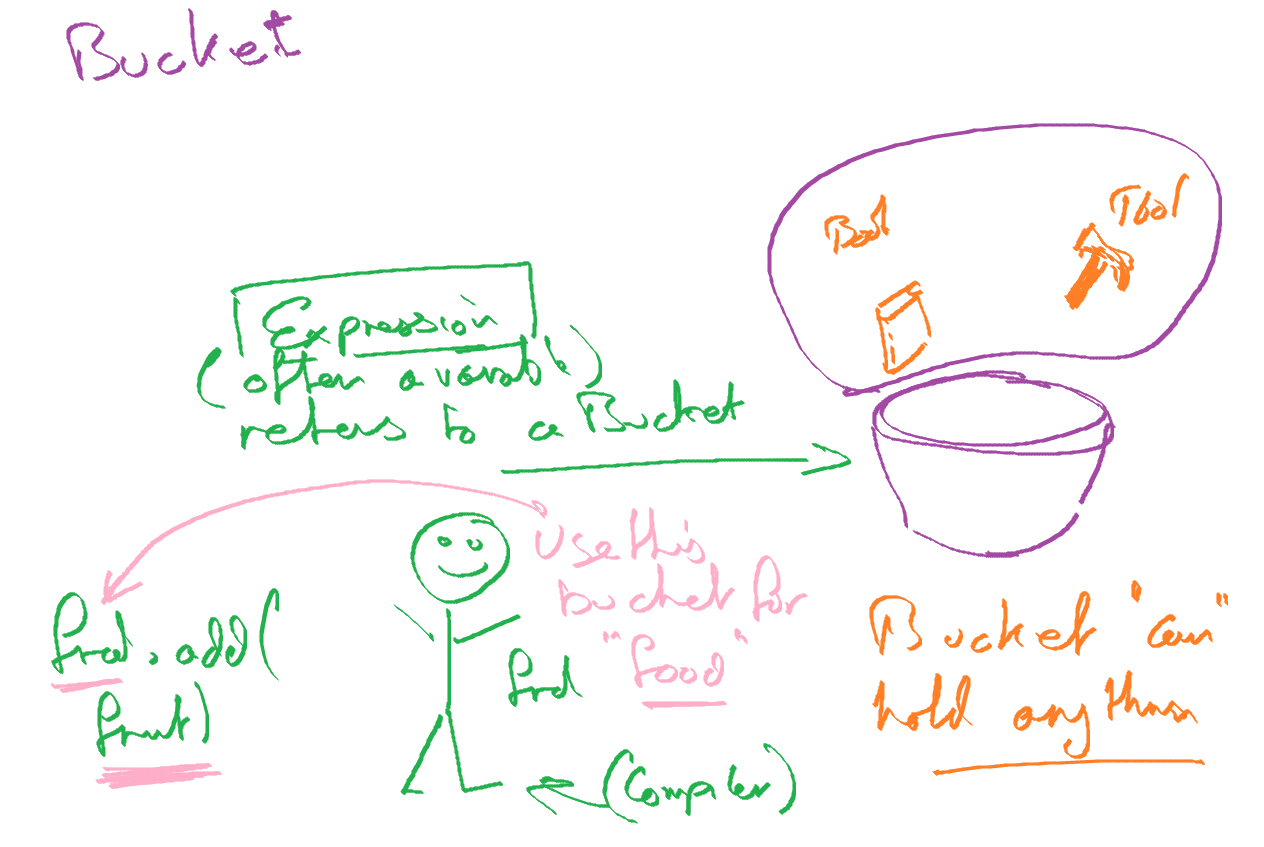 Bucket
Book
Tool
Expression
(often a variable)
refers to a Bucket
Use this
bucket for
"food"
frd.add(
fruit)
frd
(Compiler)
Bucket "can"
hold anything